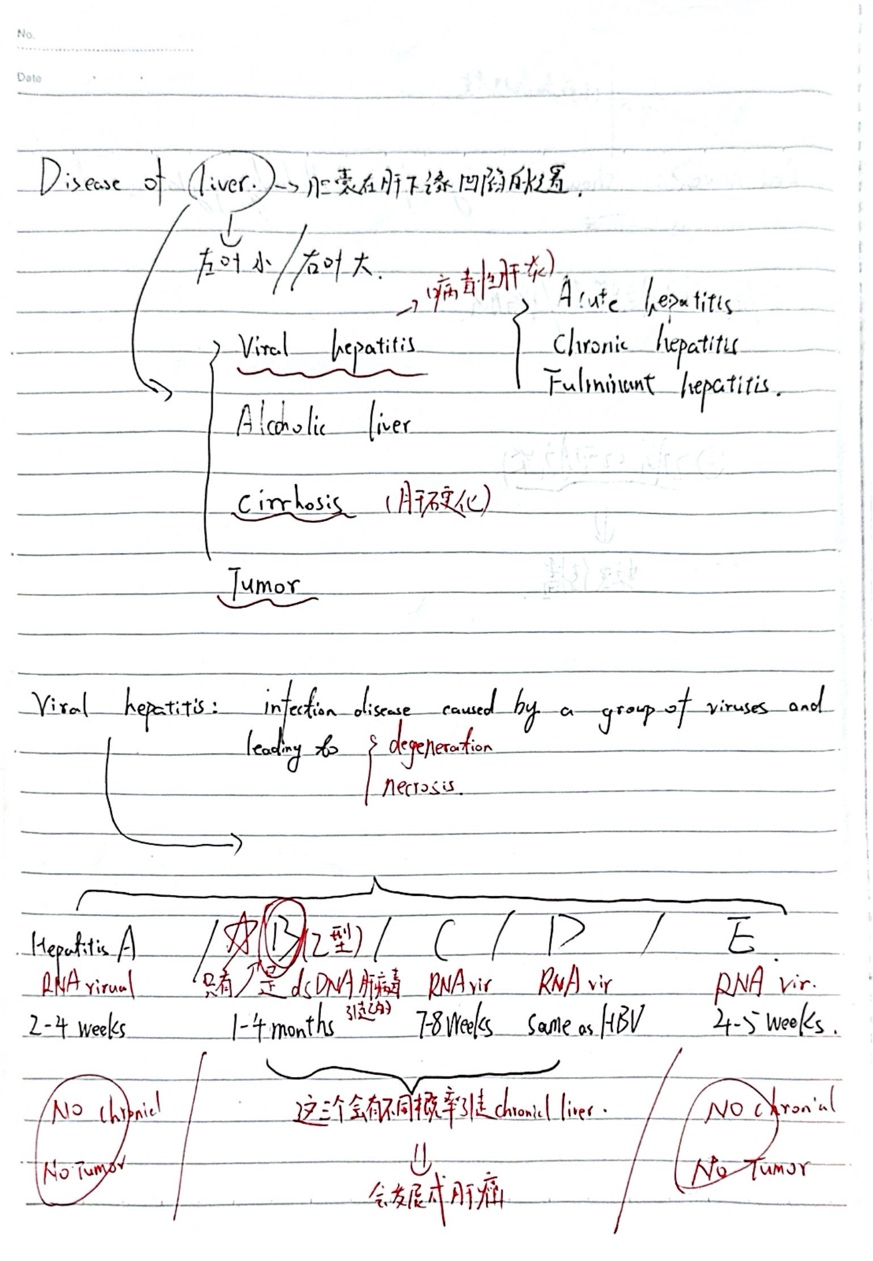 No.
Date
Disease of liver. → 胆囊在肝下缘凹陷的位置.
左叶小 / 右叶大.
→ (病毒性肝炎)
Viral hepatitis { Acute hepatitis
Chronic hepatitis
Fulminant hepatitis.
Alcoholic liver
Cirrhosis (肝硬变化)
Tumor
Viral hepatitis: infection disease caused by a group of viruses and
leading to { degeneration
necrosis.
Hepatitis A / ☆ B (乙型) / C / D / E.
RNA virual 只有 ↗ 是 dsDNA 肝病毒 RNA vir RNA vir RNA vir.
引起的
2-4 weeks 1-4 months 7-8 Weeks same as HBV 4-5 weeks.
No chronicl 这三个会有不同概率引起 chronicl liver. No chronial
No Tumor No Tumor
会发展成肝癌